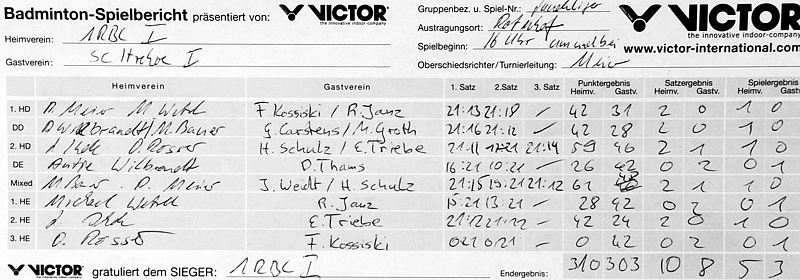 Badminton-Spielbericht präsentiert von: VICTOR
the innovative indoor-company
Gruppenbez. u. Spiel-Nr.:
VICTOR
the innovative indoor-company
Heimverein: 1RBC I
Austragungsort:
Gastverein: SC I
Spielbeginn: 16 Uhr
www.victor-international.com
Oberschiedsrichter/Turnierleitung: Meier
Heimverein Gastverein 1. Satz 2.Satz 3. Satz Punktergebnis Satzergebnis Spielergebnis
Heimv. Gastv. Heimv. Gastv. Heimv. Gastv.
1. HD Meier M. F. Kossiski / R. Janz 21:13 21:18 / 42 31 2 0 1 0
DD M. Bauer G. Carstens / M. Groth 21:16 21:12 / 42 28 2 0 1 0
2. HD H. Schulz / E. Triebe 21:11 17:21 21:14 59 46 2 1 1 0
DE Antje Wilbrandt D. Thams 16:21 10:21 / 26 42 0 2 0 1
Mixed Meier J. Weidt / H. Schulz 21:15 19:21 21:12 61 2 1 1 0
1. HE Michael R. Janz 15:21 13:21 / 28 42 0 2 0 1
2. HE E. Triebe 21:12 21:12 / 42 24 2 0 1 0
3. HE F. Kossiski 0:21 0:21 / 0 42 0 2 0 1
VICTOR
the innovative indoor-company
gratuliert dem SIEGER: 1RBC I Endergebnis: 310 303 10 8 5 3